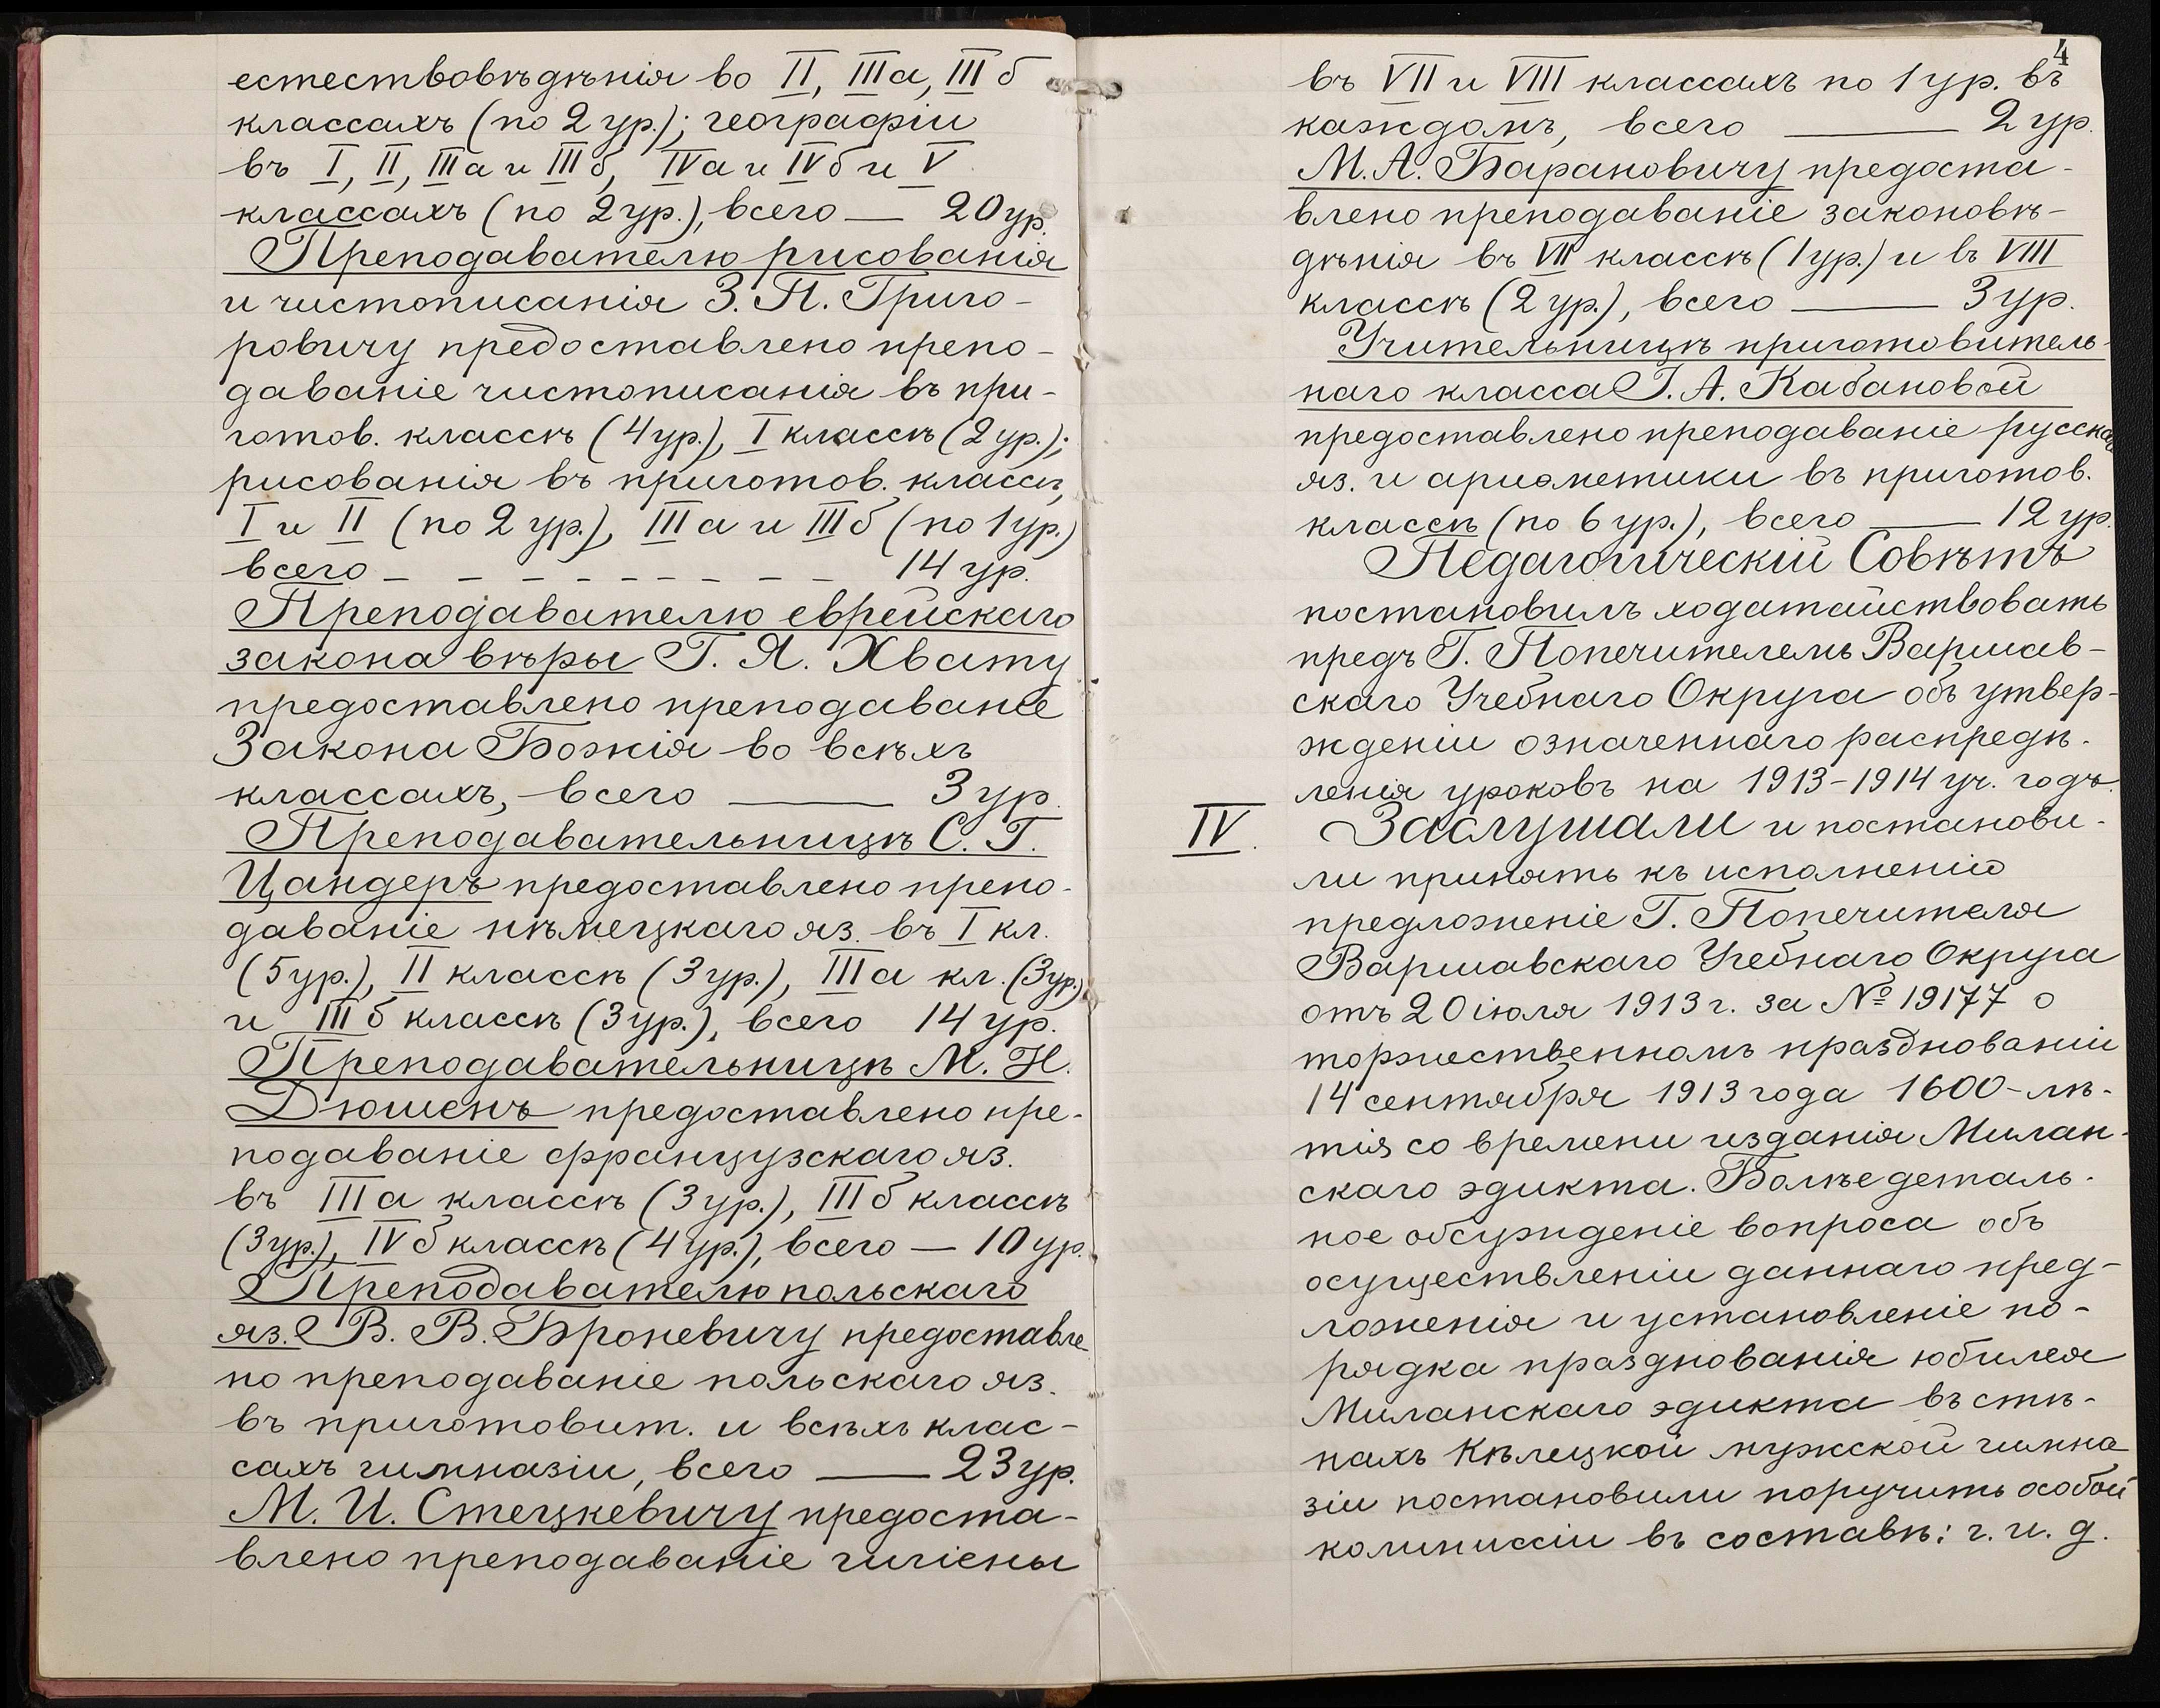 естествовѣдѣнія во II, IIIа, III б
классахъ (по 2 ур.); географіи
въ I, II, III а и III б, IV а и IV б и V
классахъ (по 2 ур.), всего — 20 ур.
Преподавателю рисованія
и чистописанія З. П. Григо-
ровичу предоставлено препо-
даваніе чистописанія въ при-
готов. классѣ (4 ур.), I классѣ (2 ур.);
рисованія въ приготов. классѣ,
I и II (по 2 ур.), III а и III б (по 1 ур.)
всего - - - - - - - - - 14 ур.
Преподавателю еврейскаго
закона вѣры Г. Я. Хвату
предоставлено преподаваніе
Закона Божія во всѣхъ
классахъ, всего — 3 ур.
Преподавательницѣ С. Г.
Цандеръ предоставлено препо-
даваніе нѣмецкаго яз. въ I кл.
(5 ур.), II классѣ (3 ур.), III а кл. (3 ур.)
и III б классѣ (3 ур.), всего 14 ур.
Преподавательницѣ М. Н.
Дюшенъ предоставлено пре-
подаваніе французскаго яз.
въ III а классѣ (3 ур.), III б классѣ
(3 ур.), IV б классѣ (4 ур.), всего — 10 ур.
Преподавателю польскаго
яз. В. В. Броневичу предоставле-
но преподаваніе польскаго яз.
въ приготовит. и всѣхъ клас-
сахъ гимназіи, всего — 23 ур.
М. И. Стецкевичу предоста-
влено преподаваніе гигіены
4
въ VII и VIII классахъ по 1 ур. въ
каждомъ, всего — 2 ур.
М. А. Барановичу предоста-
влено преподаваніе законовѣ-
дѣнія въ VII классѣ (1 ур.) и въ VIII
классѣ (2 ур.), всего — 3 ур.
Учительницѣ приготовитель-
наго класса Г. А. Кабановой
предоставлено преподаваніе русскаго
яз. и ариѳметики въ приготов.
классѣ (по 6 ур.), всего — 12 ур.
Педагогическій Совѣтъ
постановилъ ходатайствовать
предъ Г. Попечителемъ Варшав-
скаго Учебнаго Округа объ утвер-
жденіи означеннаго распредѣ-
ленія уроковъ на 1913-1914 уч. годъ.
IV. Заслушали и постанови-
ли принять къ исполненію
предложеніе Г. Попечителя
Варшавскаго Учебнаго Округа
отъ 20 іюля 1913 г. за № 19177 о
торжественномъ празднованіи
14 сентября 1913 года 1600-лѣ-
тія со времени изданія Милан-
скаго эдикта. Болѣе деталь-
ное обсужденіе вопроса объ
осуществленіи даннаго пред-
ложенія и установленіе по-
рядка празднованія юбилея
Миланскаго эдикта въ стѣ-
нахъ Кѣлецкой мужской гимна-
зіи постановили поручить особой
коммиссіи въ составѣ: г. и. д.